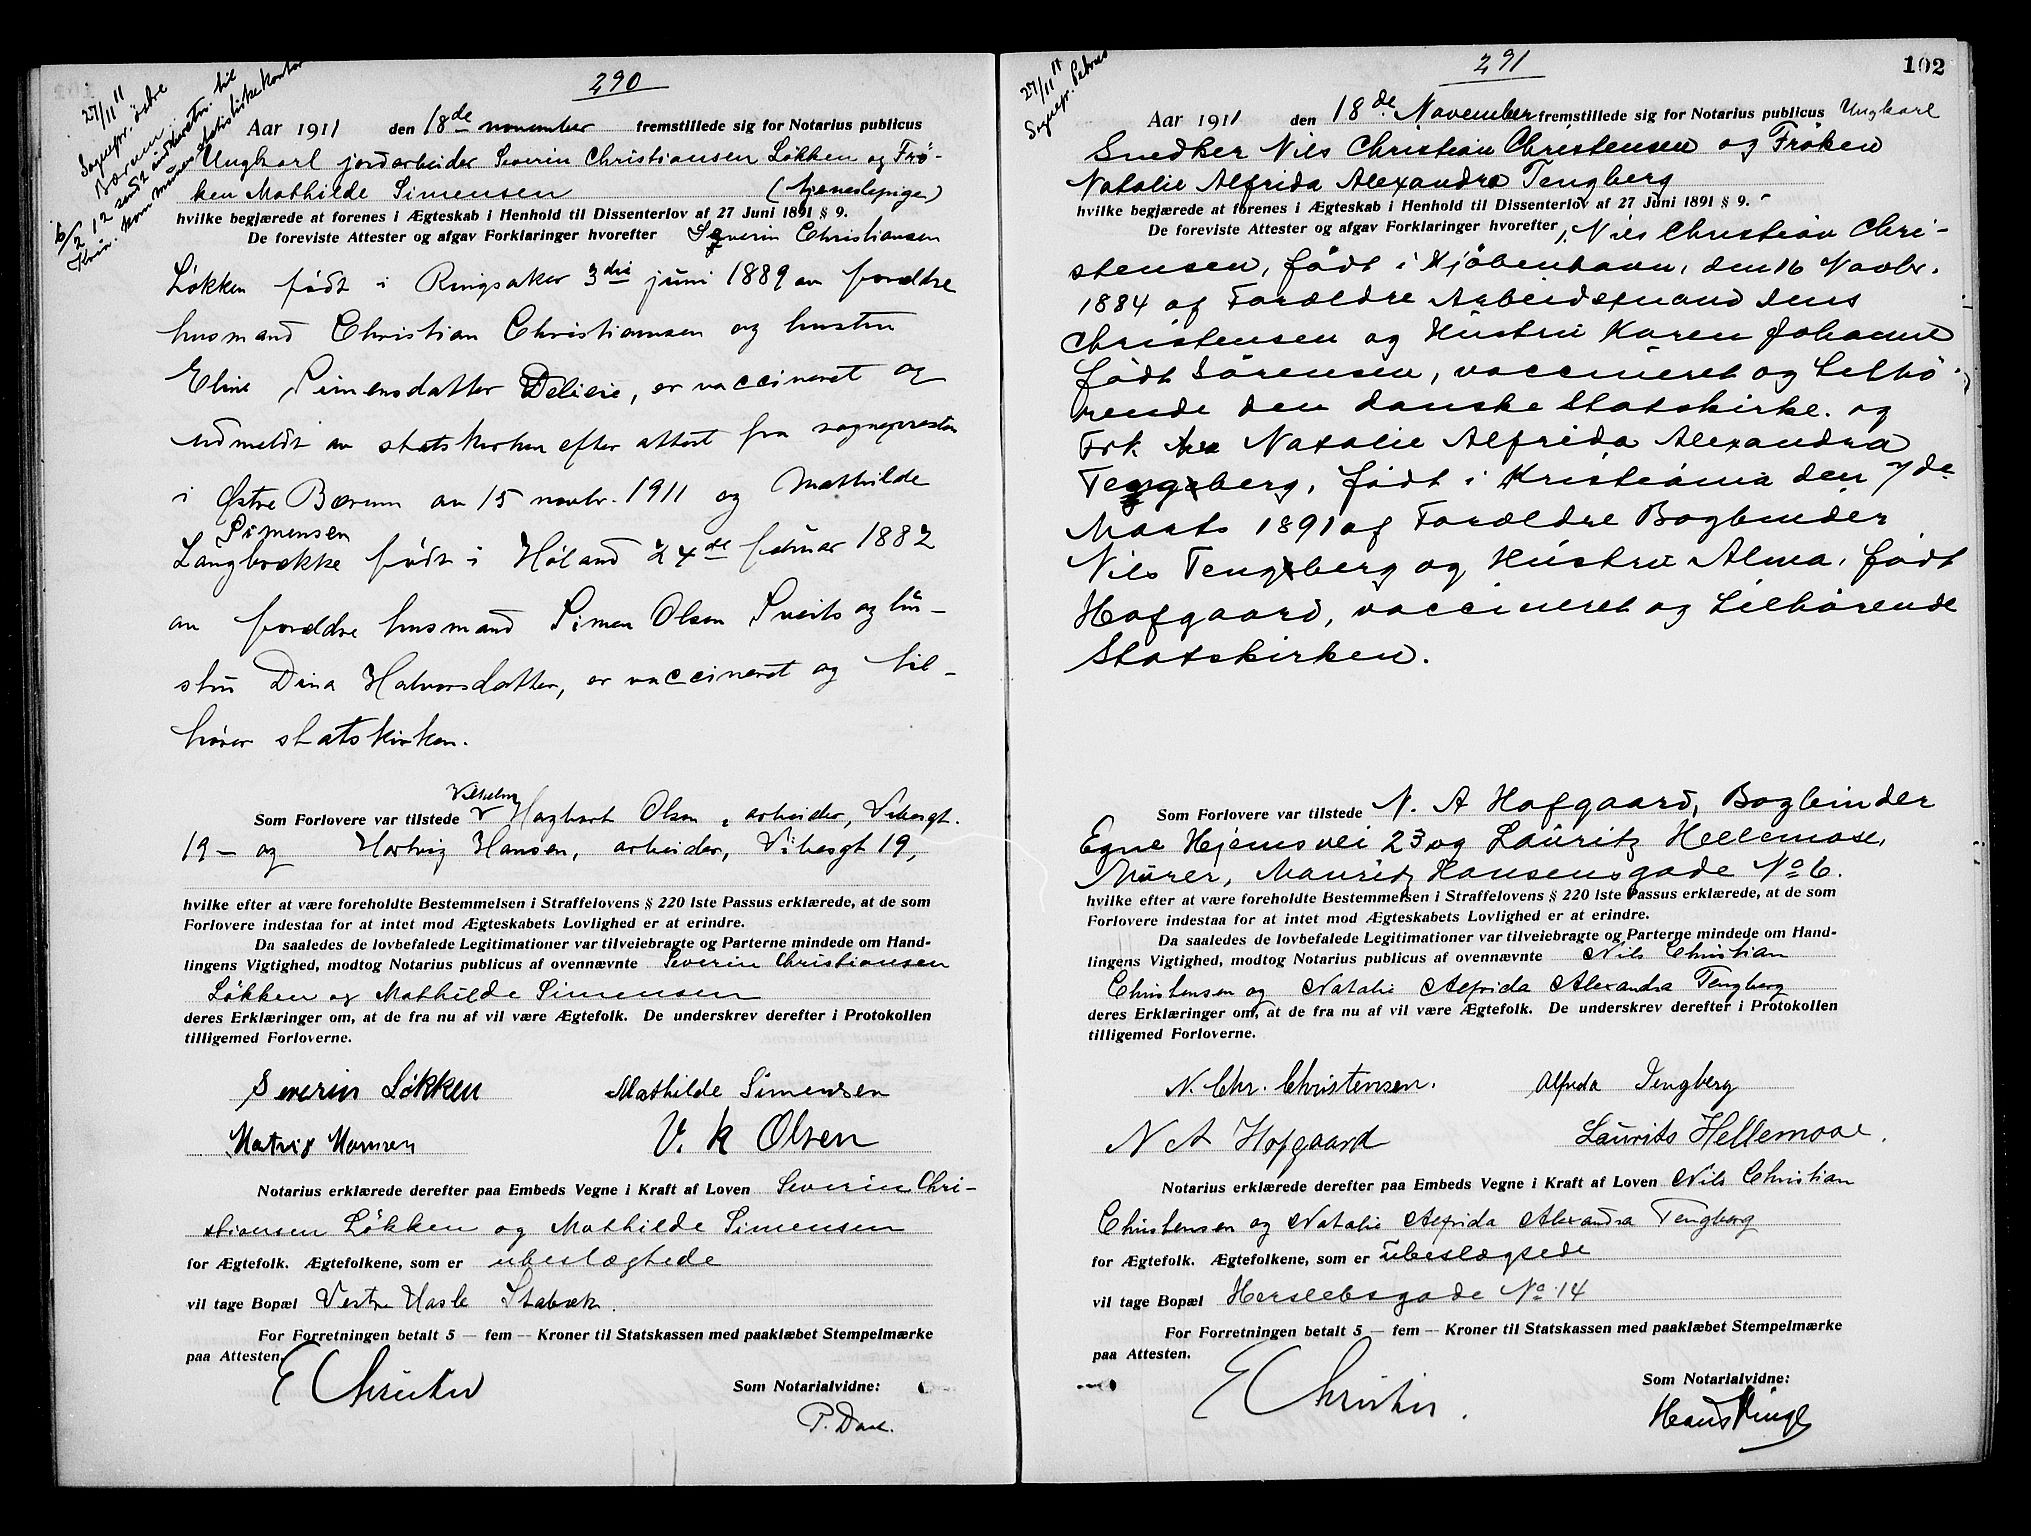 290
27/11 11
Sognepr. østre
Bærum
6/2 12 sendt indberetn. til
Krin. kommunes statistiske kontor
Aar 1911 den 18de november fremstillede sig for Notarius publicus
Ungkarl jordarbeider Severin Christiansen Løkken og Frø-
ken Mathilde Simensen (tjenestepige)
hvilke begjærede at forenes i Ægteskab i Henhold til Dissenterlov af 27 Juni 1891 § 9.
De foreviste Attester og afgav Forklaringer hvorefter Severin Christiansen
Løkken født i Ringsaker 3die juni 1889 av forældre
husmand Christian Christiansen og hustru
Eline Simensdatter, er vaccineret og
udmeldt av statskirken efter attest fra sognepresten
i Østre Bærum av 15 novbr. 1911 og Mathilde
Simensen
Langbrække født i Høland 24de februar 1882
av forældre husmand Simen Olsen Sveits og hu-
stru Dina Halvorsdatter, er vaccineret og til-
hører statskirken.
Vilhelm
Som Forlovere var tilstede Hagbart Olsen, arbeider, Vibesgt.
19 - og Hartvig Hansen, arbeider, Vibesgt 19,
hvilke efter at være foreholdte Bestemmelsen i Straffelovens § 220 1ste Passus erklærede, at de som
Forlovere indestaa for at intet mod Ægteskabets Lovlighed er at erindre.
Da saaledes de lovbefalede Legitimationer var tilveiebragte og Parterne mindede om Hand-
lingens Vigtighed, modtog Notarius publicus af ovennævnte Severin Christiansen
Løkken og Mathilde Simensen
deres Erklæringer om, at de fra nu af vil være Ægtefolk. De underskrev derefter i Protokollen
tilligemed Forloverne.
Severin Løkken Mathilde Simensen
Hatvig Hansen V. H Olsen
Notarius erklærede derefter paa Embeds Vegne i Kraft af Loven Severin Chri-
stiansen Løkken og Mathilde Simensen
for Ægtefolk. Ægtefolkene, som er ubeslægtede
vil tage Bopæl Vestre Hasle Stabæk.
For Forretningen betalt 5 — fem — Kroner til Statskassen med paaklæbet Stempelmærke
paa Attesten.
E Christie
Som Notarialvidne:
P. Daae.
291
102
27/11 11
Sognepr. Petrus
Aar 1911 den 18de November fremstillede sig for Notarius publicus Ungkarl
Snedker Nils Christian Christensen og Frøken
Natalie Alfrida Alexandra Tengberg
hvilke begjærede at forenes i Ægteskab i Henhold til Dissenterlov af 27 Juni 1891 § 9.
De foreviste Attester og afgav Forklaringer hvorefter, Nils Christian Chri-
stensen, født i Kjøbenhavn, den 16 Novbr.
1884 af Forældre Arbeidsmand Jens
Christensen og Hustru Karen Johanne
født Sørensen, vaccineret og tilhø-
rende den danske Statskirke. og
Frk. Natalie Alfrida Alexandra
Tengberg, født i Kristiania den 7de
Marts 1891 af Forældre Bogbinder
Nils Tengberg og Hustru Alma, født
Hofgaard, vaccineret og tilhørende
Statskirken.
Som Forlovere var tilstede N. A Hofgaard, Bogbinder
Egne Hjemsvei 23 og Lauritz Hellemose,
Murer, Mauritz Hansensgade No 6.
hvilke efter at være foreholdte Bestemmelsen i Straffelovens § 220 1ste Passus erklærede, at de som
Forlovere indestaa for at intet mod Ægteskabets Lovlighed er at erindre.
Da saaledes de lovbefalede Legitimationer var tilveiebragte og Parterne mindede om Hand-
lingens Vigtighed, modtog Notarius publicus af ovennævnte Nils Christian
Christensen og Natalie Alfrida Alexandra Tengberg
deres Erklæringer om, at de fra nu af vil være Ægtefolk. De underskrev derefter i Protokollen
tilligemed Forloverne.
N. Chr. Christensen. Alfrida Tengberg
N A Hofgaard Laurits Hellemose.
Notarius erklærede derefter paa Embeds Vegne i Kraft af Loven Nils Christian
Christensen og Natalie Alfrida Alexandra Tengberg
for Ægtefolk. Ægtefolkene, som er ubeslægtede
vil tage Bopæl Herslebsgade No 14
For Forretningen betalt 5 — fem — Kroner til Statskassen med paaklæbet Stempelmærke
paa Attesten.
E Christie.
Som Notarialvidne:
Hans